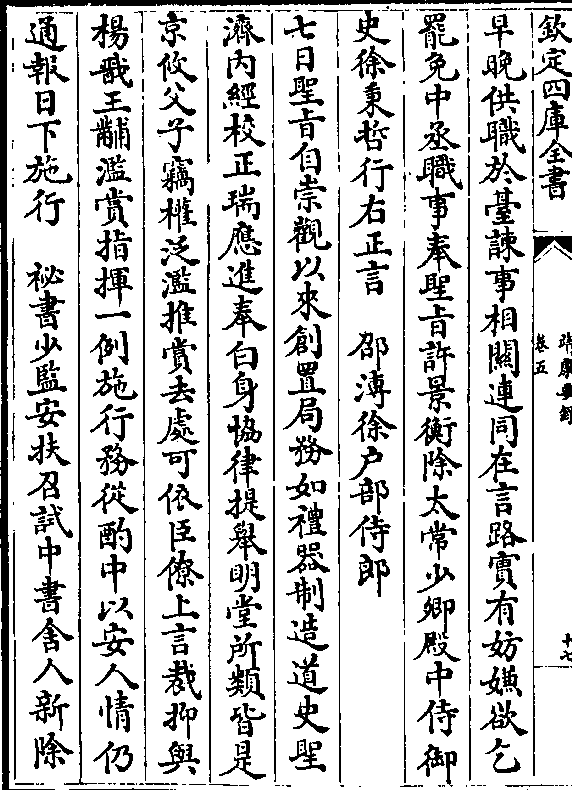 欽定四庫全書
靖康要録
卷五
十七
早晚供職於臺諫事相關連同在言路實有妨嫌欲乞
罷免中丞職事奉聖旨許景衡除太常少卿殿中侍御
史徐秉哲行右正言　邵溥徐户部侍郎
七日聖旨自崇觀以來創置局務如禮器制造道史聖
濟內經校正瑞應進奉白身協律提舉明堂所類皆是
京攸父子竊權泛濫推賞去處可依臣僚上言裁抑與
楊戩王黼濫賞指揮一例施行務從酌中以安人情仍
通報日下施行　祕書少監安扶召試中書舍人新除